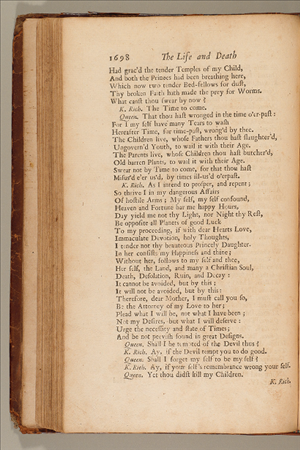 1698 The Life and Death
Had grac'd the tender Temples of my Child,
And both the Princes had been breathing here,
Which now two tender Bed-fellows for dust,
Thy broken Faith hath made the prey for Worms.
What canst thou swear by now?
K. Rich. The Time to come.
Queen. That thou hast wronged in the time o'er-past:
For I my self have many Tears to wash
Hereafter Time, for time-past, wrong'd by thee.
The Children live, whose Fathers thou hast slaughter'd,
Ungovern'd Youth, to wail it with their Age.
The Parents live, whose Children thou hast butcher'd,
Old barren Plants, to wail it with their Age.
Swear not by Time to come, for that thou hast
Misus'd e'er us'd, by times ill-us'd o'erpast.
K. Rich. As I intend to prosper, and repent;
So thrive I in my dangerous Affairs
Of hostile Arms; My self, my self confound,
Heaven and Fortune bar me happy Hours,
Day yield me not thy Light, nor Night thy Rest,
Be opposite all Planets of good Luck
To my proceeding, if with dear Hearts Love,
Immaculate Devotion, holy Thoughts,
I tender not thy beauteous Princely Daughter.
In her consists my Happiness and thine;
Without her, follows to my self and thee,
Her self, the Land, and many a Christian Soul,
Death, Desolation, Ruin, and Decay:
It cannot be avoided, but by this;
It will not be avoided, but by this:
Therefore, dear Mother, I must call you so,
Be the Attorney of my Love to her;
Plead what I will be, not what I have been;
Not my Deserts, but what I will deserve:
Urge the necessity and state of Times;
And be not peevish found in great Designs.
Queen. Shall I be tempted of the Devil thus?
K. Rich. Ay, if the Devil tempt you to do good.
Queen. Shall I forget my self to be my self?
K. Rich. Ay, if your self's remembrance wrong your self.
Queen. Yet thou didst kill my Children.
K. Rich.